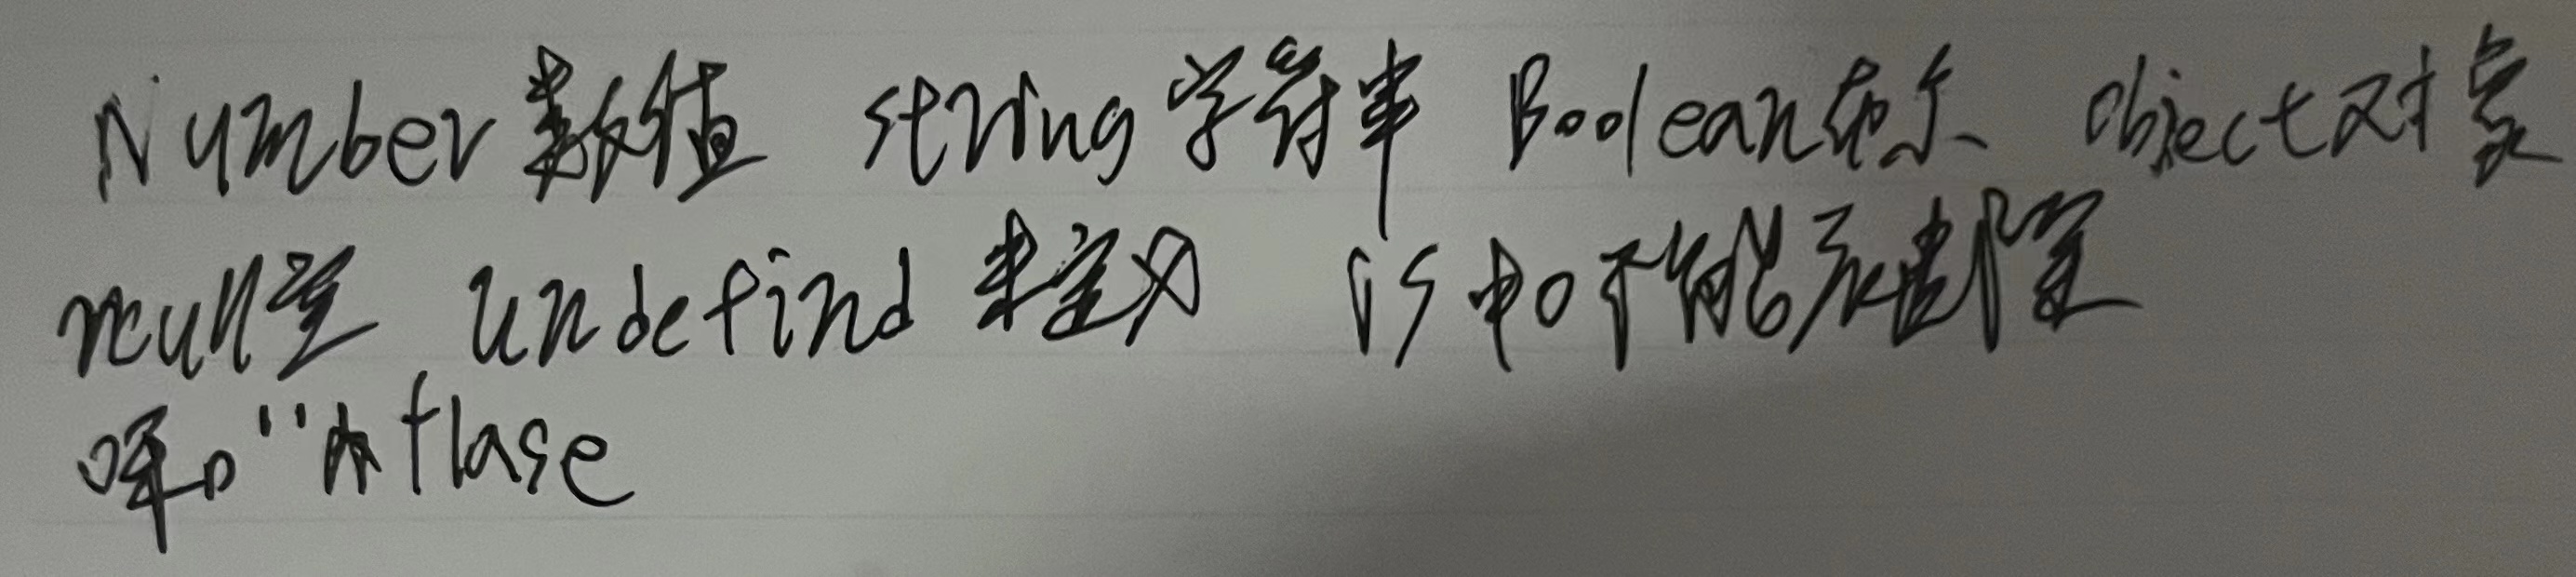 Number数值 string字符串 Boolean布尔 object对象
null空 undefind 未定义 js中0不能
0 '' 为flase